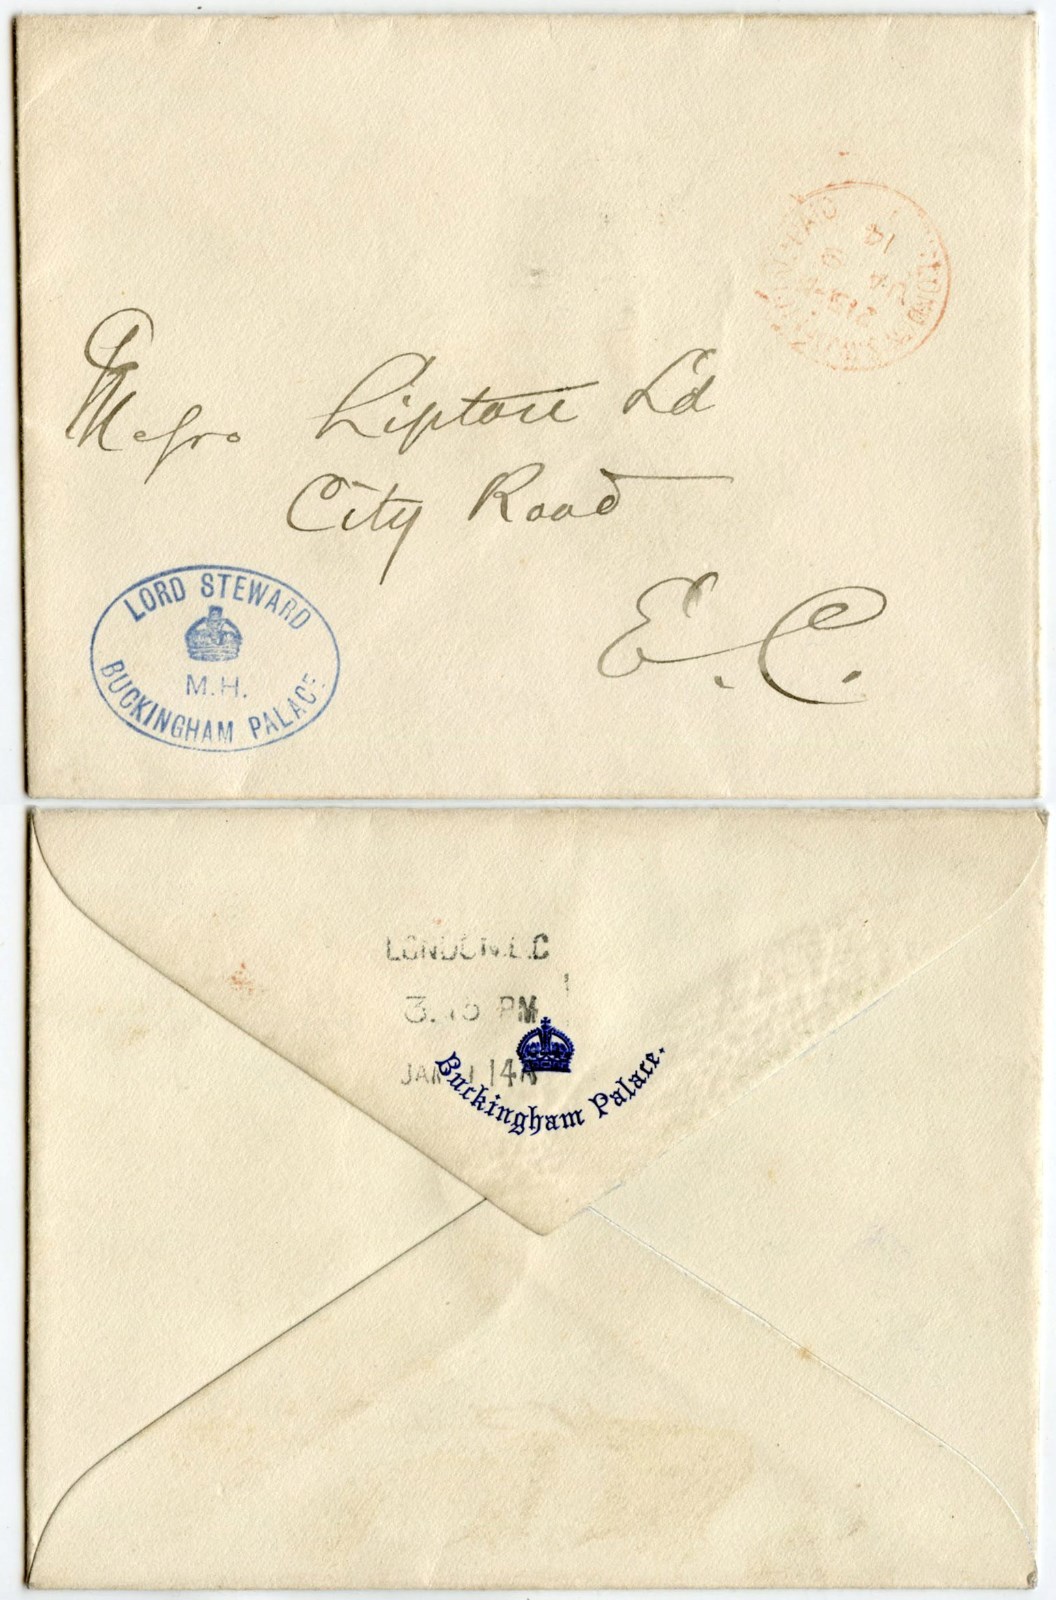 Messrs Lipton Ld
City Road
E.C.
LORD STEWARD
M.H.
BUCKINGHAM PALACE
PAID
14
LONDON.E.C
3.15 PM
JAN 14
Buckingham Palace.